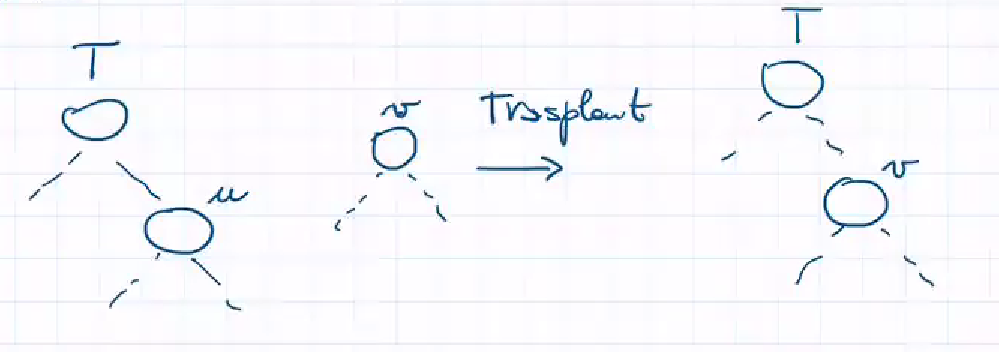 T
u
v
Trasplant
T
v